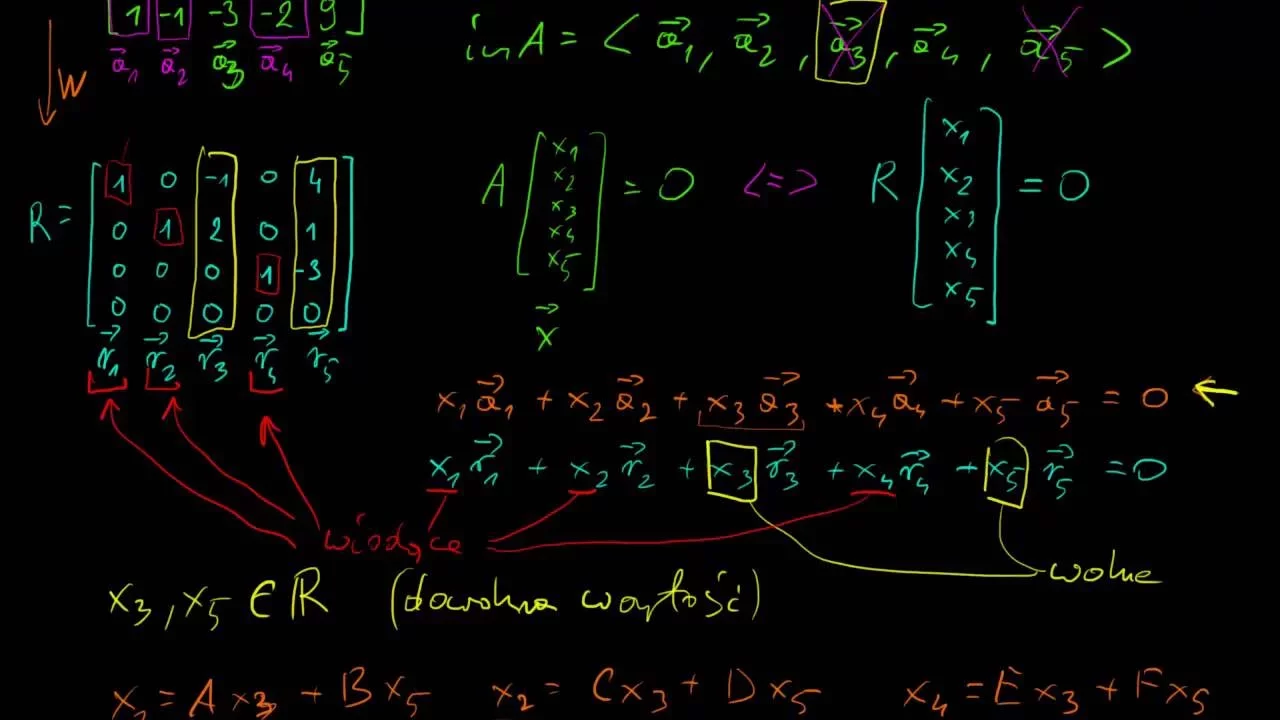 1 -1 -3 -2 9 ]
a⃗₁ a⃗₂ a⃗₃ a⃗₄ a⃗₅
im A = < a⃗₁, a⃗₂, a⃗₃, a⃗₄, a⃗₅ >
W
R = [ 1 0 -1 0 4
0 1 2 0 1
0 0 0 1 -3
0 0 0 0 0 ]
r⃗₁ r⃗₂ r⃗₃ r⃗₄ r⃗₅
A [ x₁ x₂ x₃ x₄ x₅ ] = 0 <=> R [ x₁ x₂ x₃ x₄ x₅ ] = 0
x⃗
x₁a⃗₁ + x₂a⃗₂ + x₃a⃗₃ + x₄a⃗₄ + x₅a⃗₅ = 0
x₁r⃗₁ + x₂r⃗₂ + x₃r⃗₃ + x₄r⃗₄ + x₅r⃗₅ = 0
wiodące
wolne
x₃, x₅ ∈ ℝ (dowolna wartość)
x₁ = Ax₃ + Bx₅ x₂ = Cx₃ + Dx₅ x₄ = Ex₃ + Fx₅